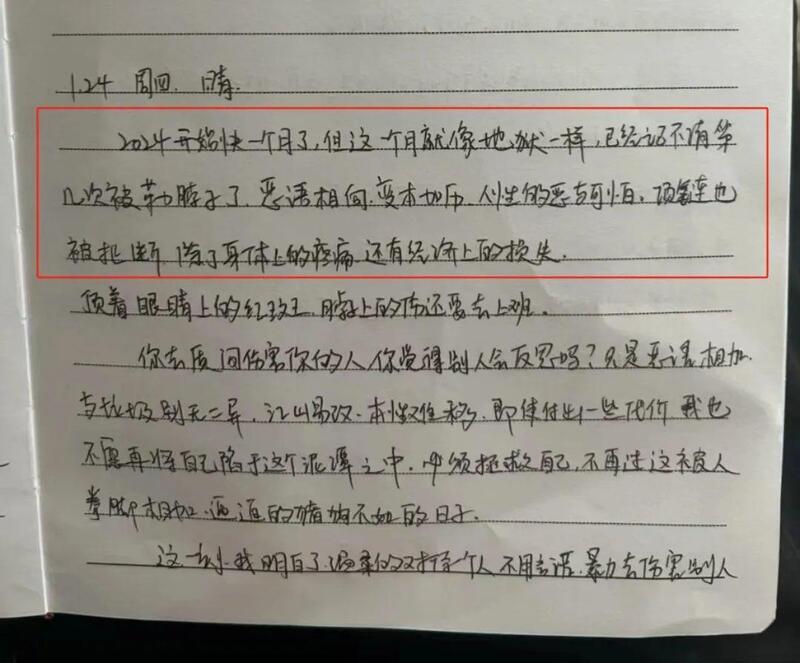 1.24 周四. 晴.
2024开始快一个月了,但这一个月就像地狱一样,已经记不清第
几次被勒脖子了.恶语相向.变本加厉.人性的恶与可怕.项链也
被扯断.除了身体上的疼痛.还有经济上的损失.
顶着眼睛上的红斑.脖子上的伤还要去上班.
你去质问伤害你的人你觉得别人会反思吗?只是恶语相加.
与垃圾别无二异,江山易改.本性难移.即使付出一些代价.我也
不愿再将自己陷于这个泥潭之中.必须拯救自己,不再过这被人
拳脚相加.逼迫的猪狗不如的日子.
这一刻.我明白了温柔的对待一个人不用言语.暴力去伤害别人